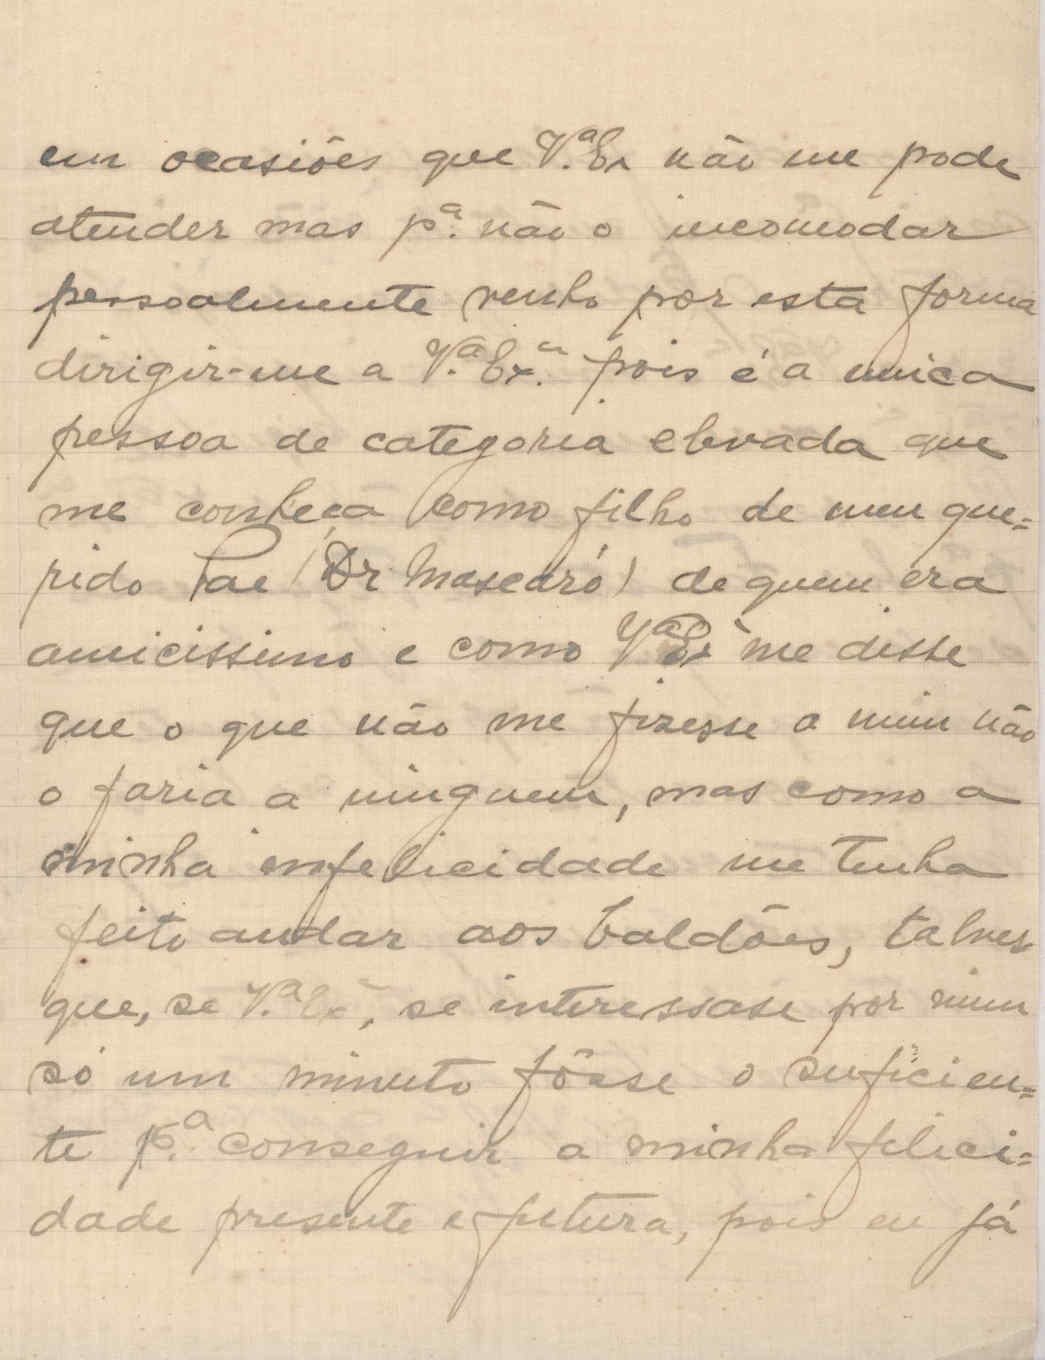 em ocasiões que V.ª Ex não me pode
atender mas p.ª não o incomodar
pessoalmente venho por esta forma
dirigir-me a V.ª Ex.ª pois é a unica
pessoa de categoria elevada que
me conheça como filho de meu que=
rido Pae (Dr Mascaró) de quem era
amicissimo e como V.ª Exª me disse
que o que não me fizesse a mim não
o faria a ninguem, mas como a
minha infelicidade me tenha
feito andar aos baldões, talves
que, se V.ª Exª, se interessase por mim
só um minuto fôsse o suficien=
te p.ª conseguir a minha felici=
dade presente e futura, pois eu já